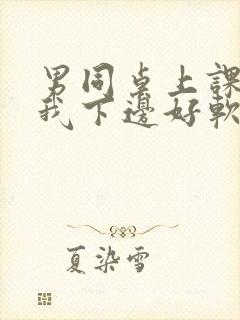 男同桌上課
我下邊好軟
夏染雪